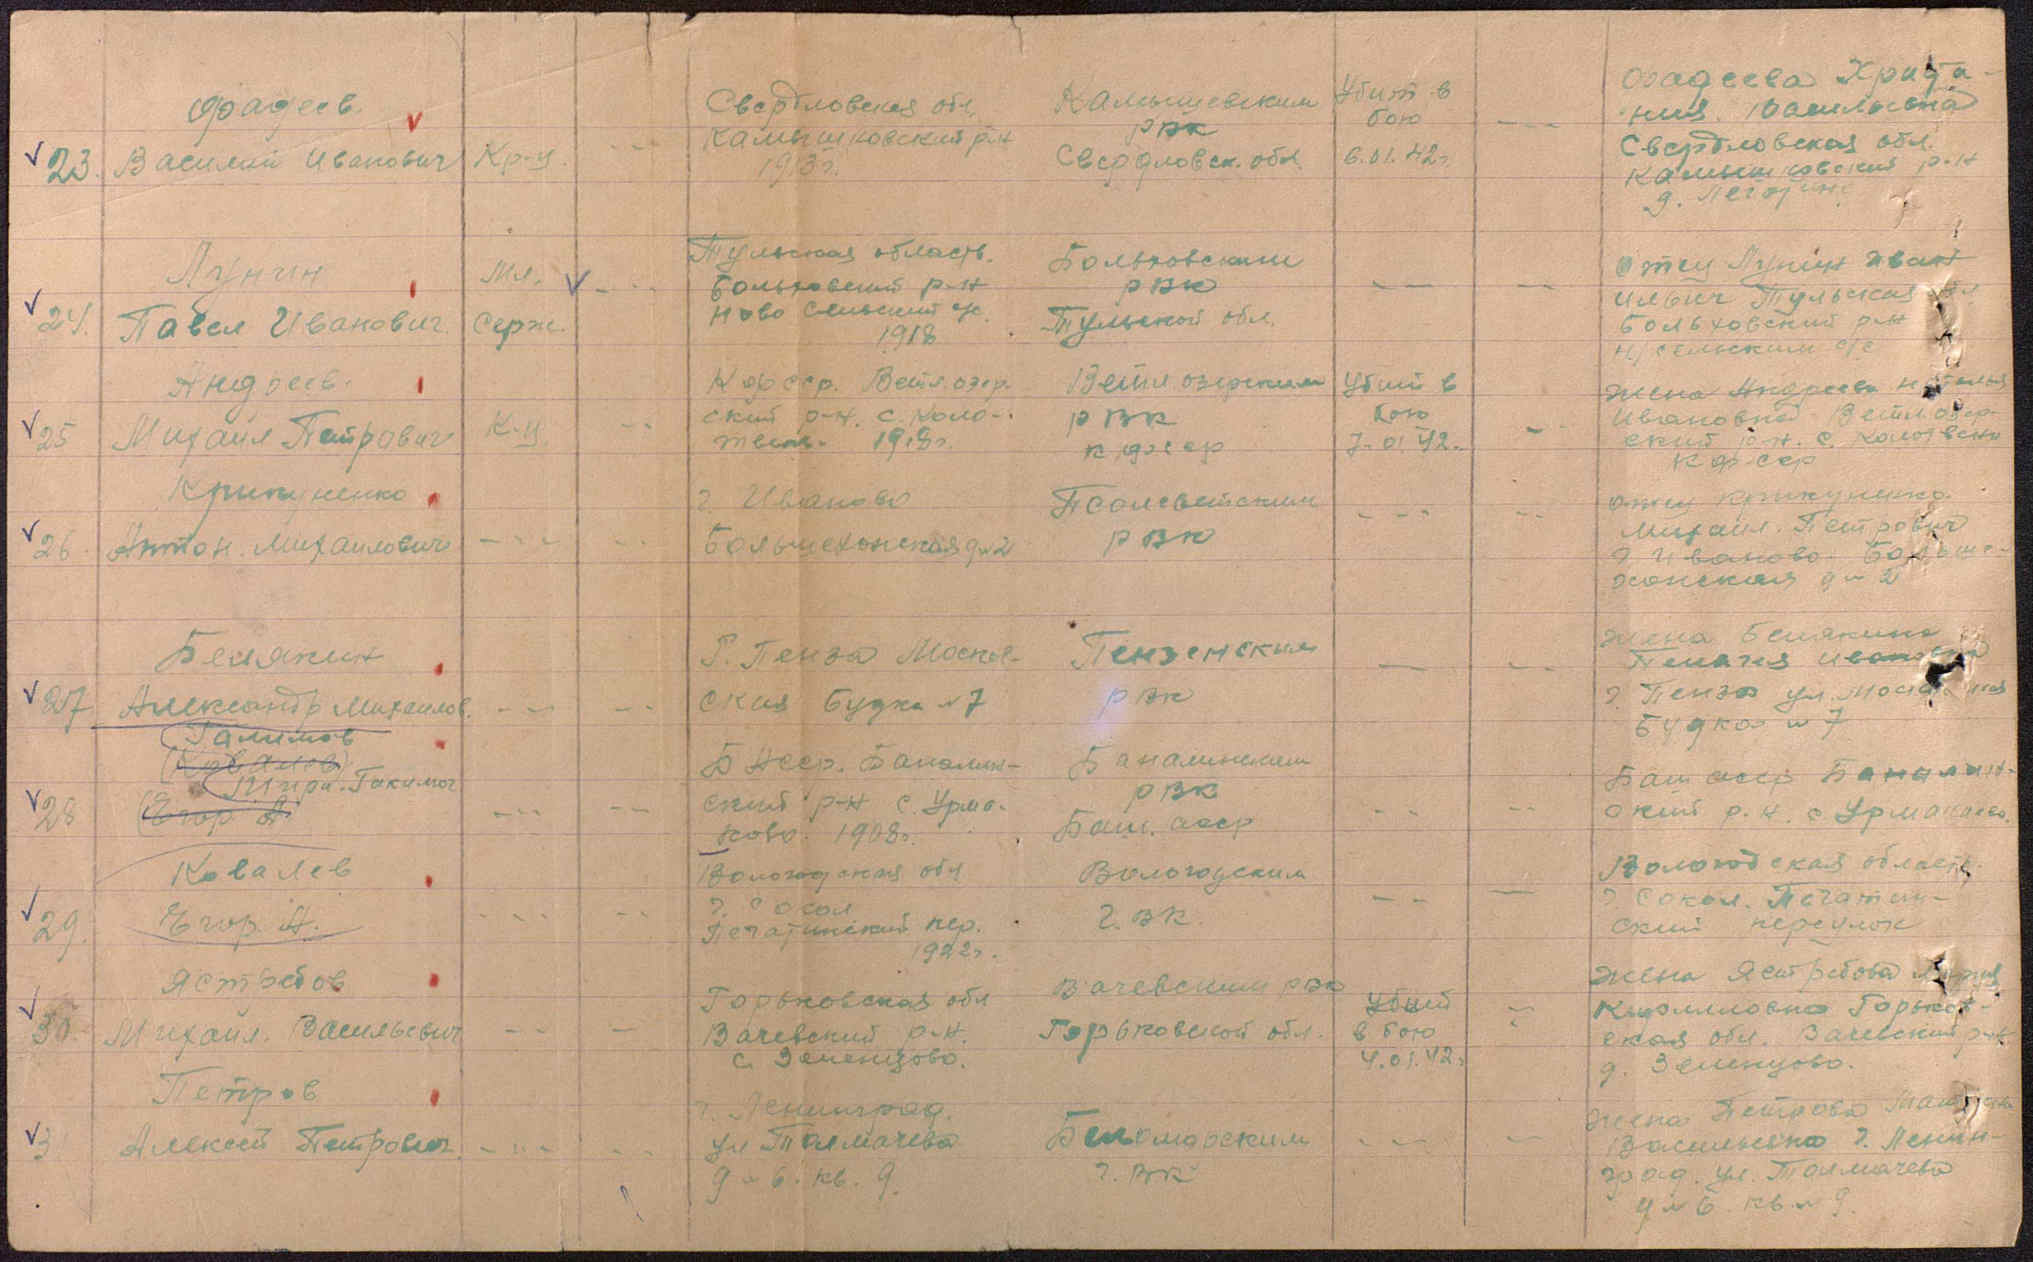 Фадеев
23. Василий Иванович
Кр-ц.
Свердловская обл.
Камышловский р-н
1913г.
Камышевским
РВК
Свердловск. обл.
Убит в
бою
6.01.42г.
Фадеева Христи-
ния Васильевна
Свердловская обл.
Камышловский р-н
Лунин
24. Павел Иванович
Мл.
Серж.
Тульская область.
Больховский р-н
Ново Сельский
1918
Больховским
РВК
Тульской обл.
Отец Лунин Иван
Ильич Тульская обл
Больховский р-н
Н/сельским с/с
Андреев.
25 Михаил Петрович
К-ц.
КФССР. Ветл.озер.
ский р-н. с.
1918г.
РВК
КФССР
Убит в
бою
7.01.42г.
жена Андреева Наталья
Ивановна
ский р-н. с.
КФССР
Крикуненко
26. Антон. Михаилович
г. Иваново
РВК
отец Крикуненко
Михаил. Петрович
г. Иваново
Белякин
27 Александр Михаилов.
г. Пенза Москов-
ская Будка №7
Пензенским
РВК
жена Белякина
Пелагия Ивановна
г. Пенза ул. Московская
Будка № 7
Галимов
28
БАССР.
ский р-н с. Урма-
ково. 1908г.
РВК
Баш. АССР
Баш АССР
ский р.н. с Урмаково.
Ковалев
29. Егор. А.
Вологодская обл
г. Сокол
Печаткинский пер.
1922г.
Вологодским
Г.ВК.
Вологодская область.
г. Сокол. Печаткин-
ский переулок
Ястребов
30. Михаил. Васильевич
Горьковская обл
Вачевский р-н.
с. Зеленцово.
Вачевским РВК
Горьковской обл.
Убит
в бою
4.01.42г.
жена Ястребова Мария
Кирилловна Горьков-
ская обл. Вачевский р-н
д. Зеленцово.
Петров
3 Алексей Петрович
г. Ленинград.
ул Толмачева
д № 6. кв. 9.
Беломорским
Г.ВК
жена Петрова
Васильевна г. Ленин-
град. ул. Толмачева
д № 6 кв. № 9.